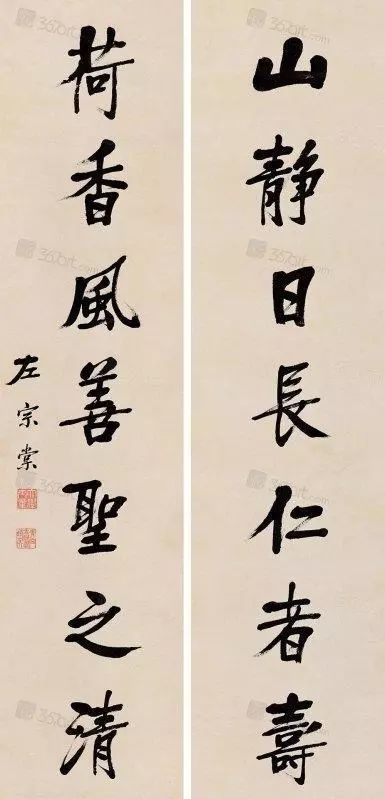 山靜日長仁者壽
荷香風善聖之清
左宗棠
365art.com